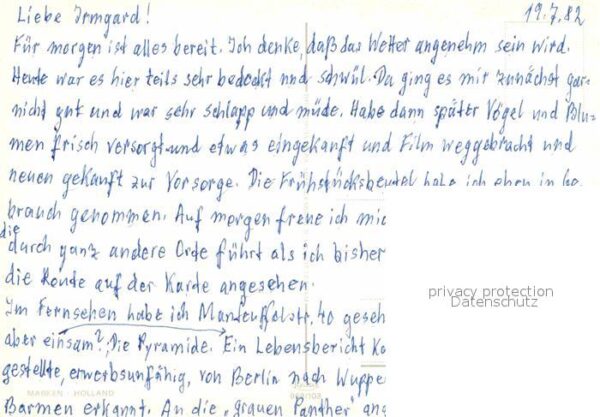 Liebe Irmgard!
19.7.82
Für morgen ist alles bereit. Ich denke, daß das Wetter angenehm sein wird.
Heute war es hier teils sehr bedeckt und schwül. Da ging es mir zunächst gar-
nicht gut und war sehr schlapp und müde. Habe dann später Vögel und Blu-
men frisch versorgt und etwas eingekauft und Film weggebracht und
neuen gekauft zur Vorsorge. Die Frühstücksbeutel habe ich eben in Ge-
brauch genommen. Auf morgen freue ich mic
die
durch ganz andere Orte führt als ich bisher
die Route auf der Karte angesehen.
privacy protection
Datenschutz
Im Fernsehen habe ich 40 geseh
aber einsam? „Die Pyramide. Ein Lebensbericht
gestellte, erwerbsunfähig, von Berlin nach Wuppe
MARKEN - HOLLAND
Barmen erkannt. An die „grauen Panther" ang